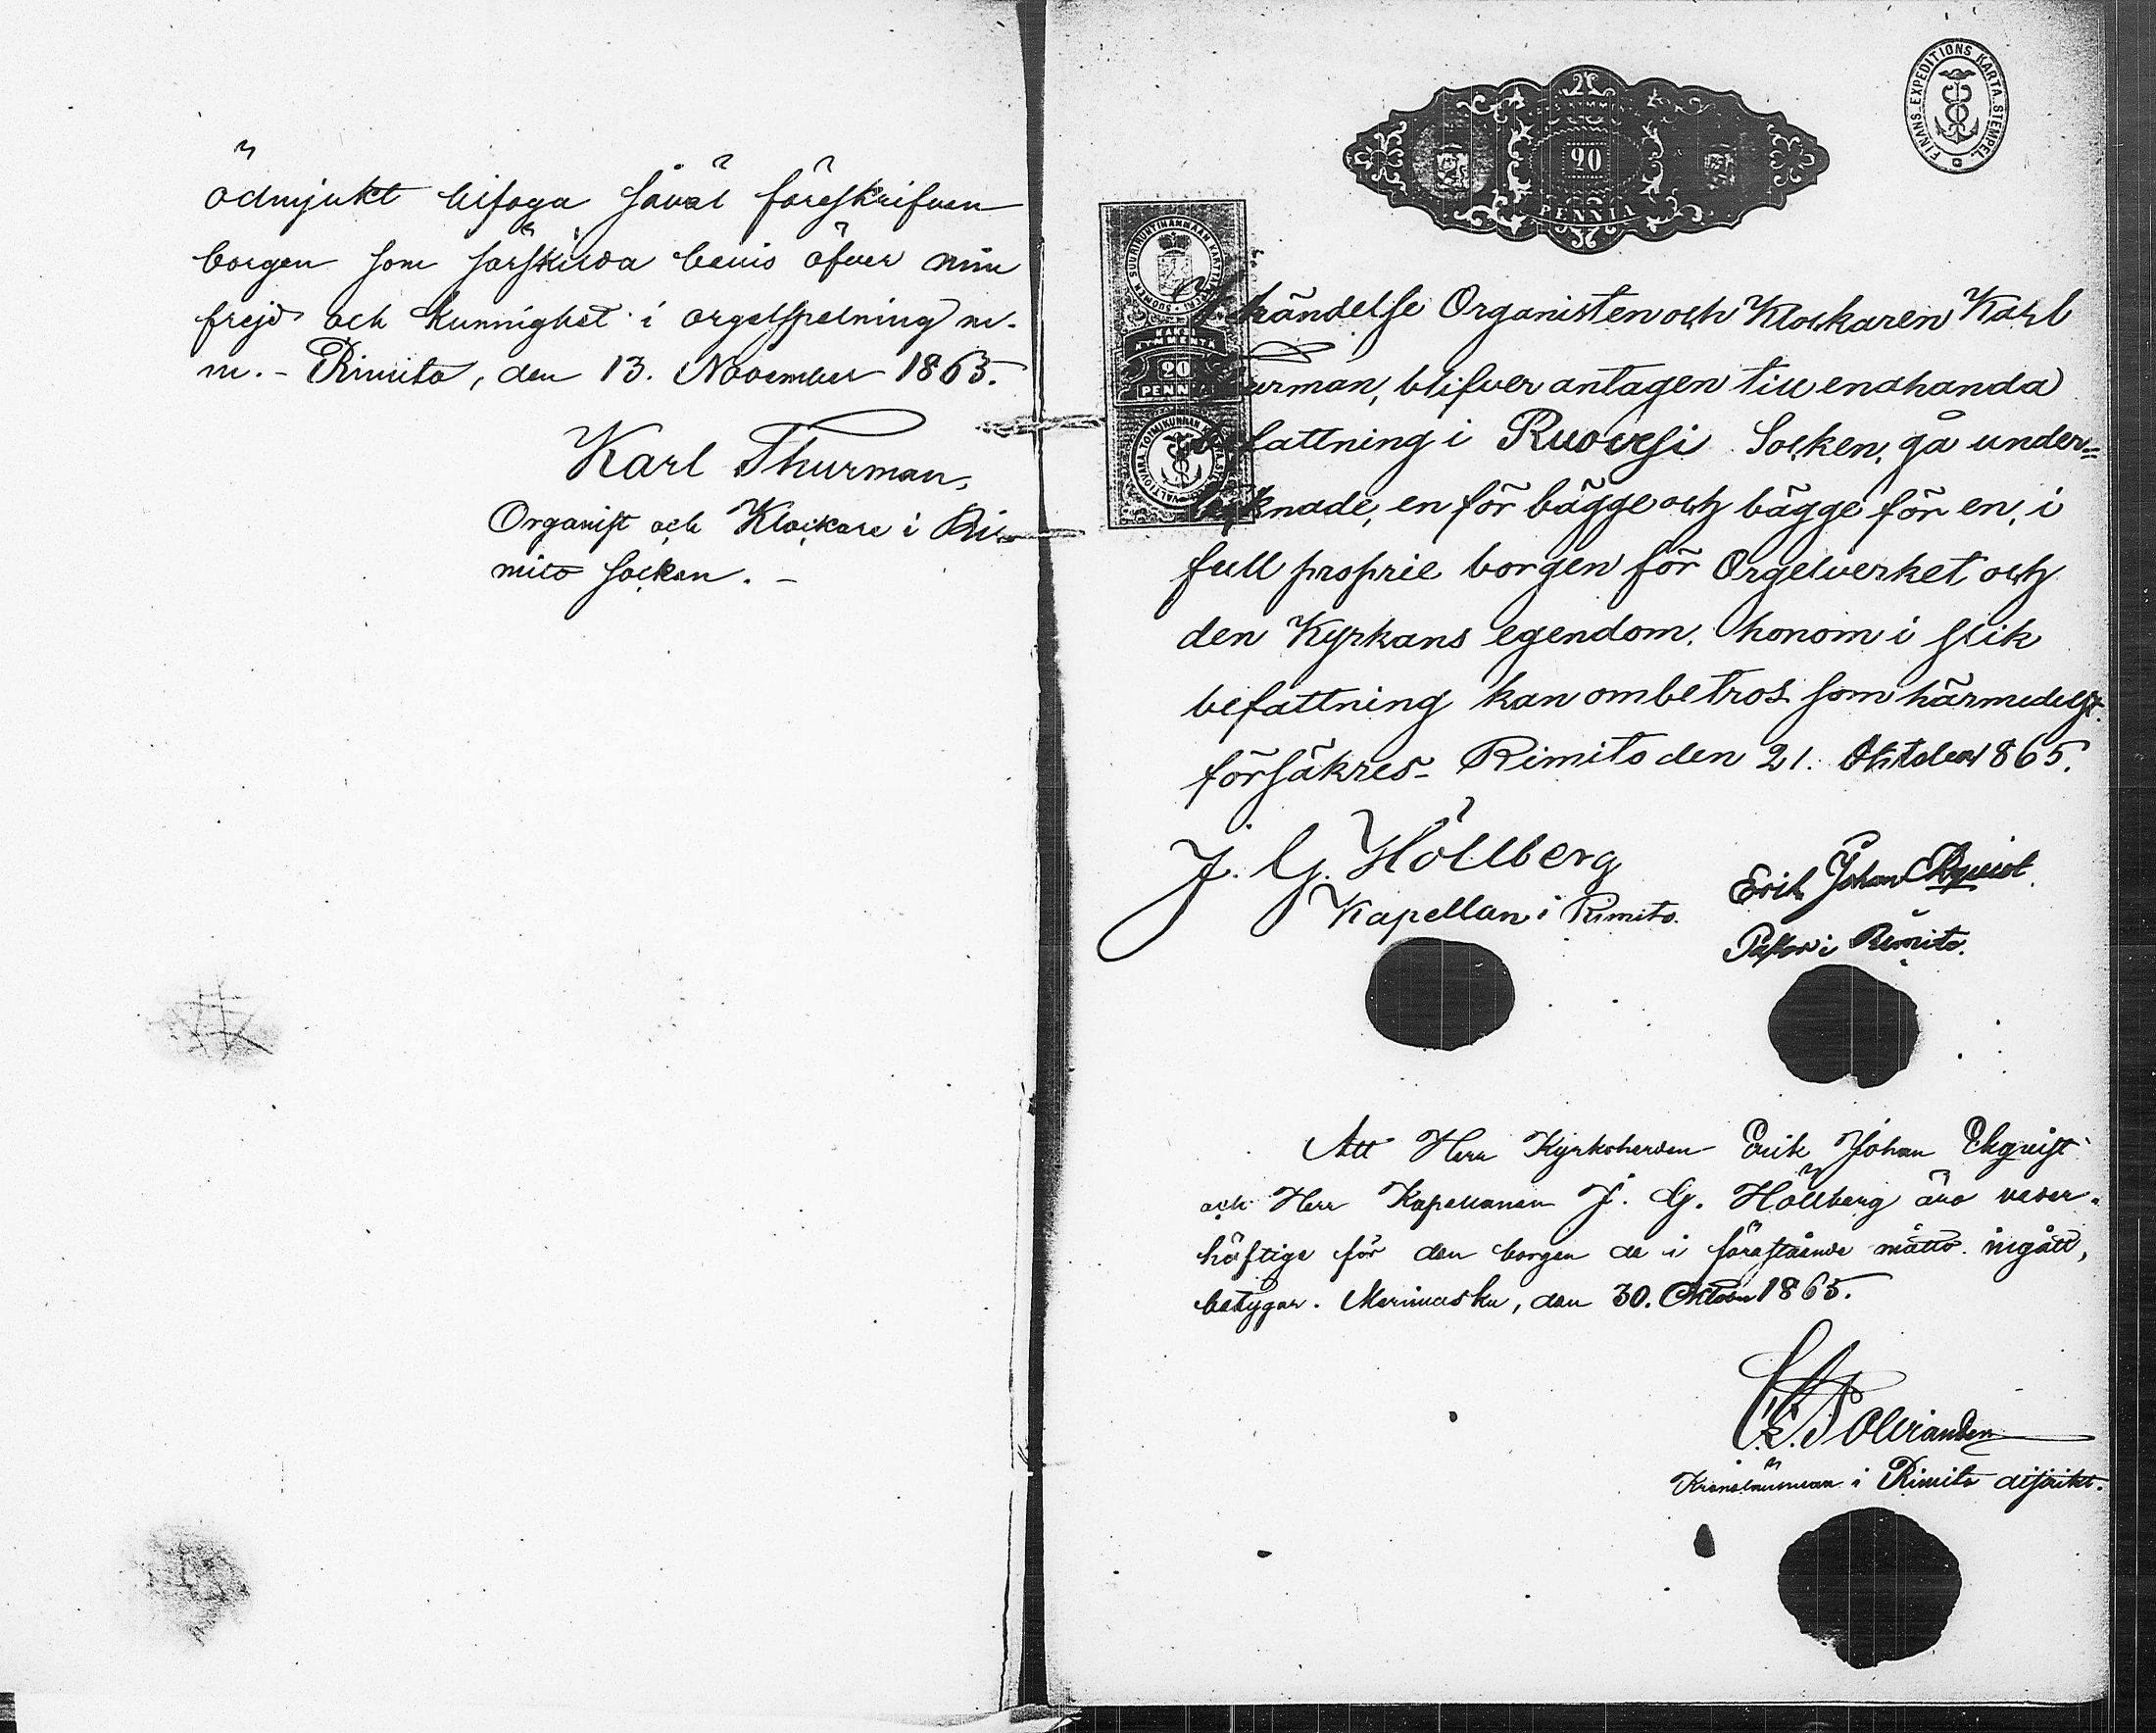 ödmjukt bifoga såväl föreskrifven
borgen som särskilda bevis öfver min
frejd och kunnighet i orgelspelning m.
m. - Rimito, den 13. November 1865.
Karl Thurman,
Organist och Klockare i Ri-
mito socken. -
FINANS.EXPEDITIONS KARTA.STEMPEL.
20
PENNIÄ
SUOMEN SUURIRUHTINANMAAN KARTTAPAPERI
KAKSI
KYMMENTÄ
20
PENNIÄ
händelse Organisten och Klockaren Karl
Thurman, blifver antagen till enahanda
befattning i Ruovesi Socken, gå under=
tecknade, en för bägge och bägge för en, i
full proprie borgen för Orgelverket och
den Kyrkans egendom, honom i slik
befattning kan ombetros som härmedelst
försäkres - Rimito den 21. Oktober 1865.
J. G. Höllberg
Kapellan i Rimito.
Erik Johan Ekqvist.
Pastor i Rimito.
Att Herr Kyrkoherden Erik Johan Ekqvist
och Herr Kapellanen J. G. Höllberg äro veder-
häftige för den borgen de i förestående måtto ingått,
betygar. Merimasku, den 30. Oktober 1865.
Kronolänsman i Rimito distrikt.